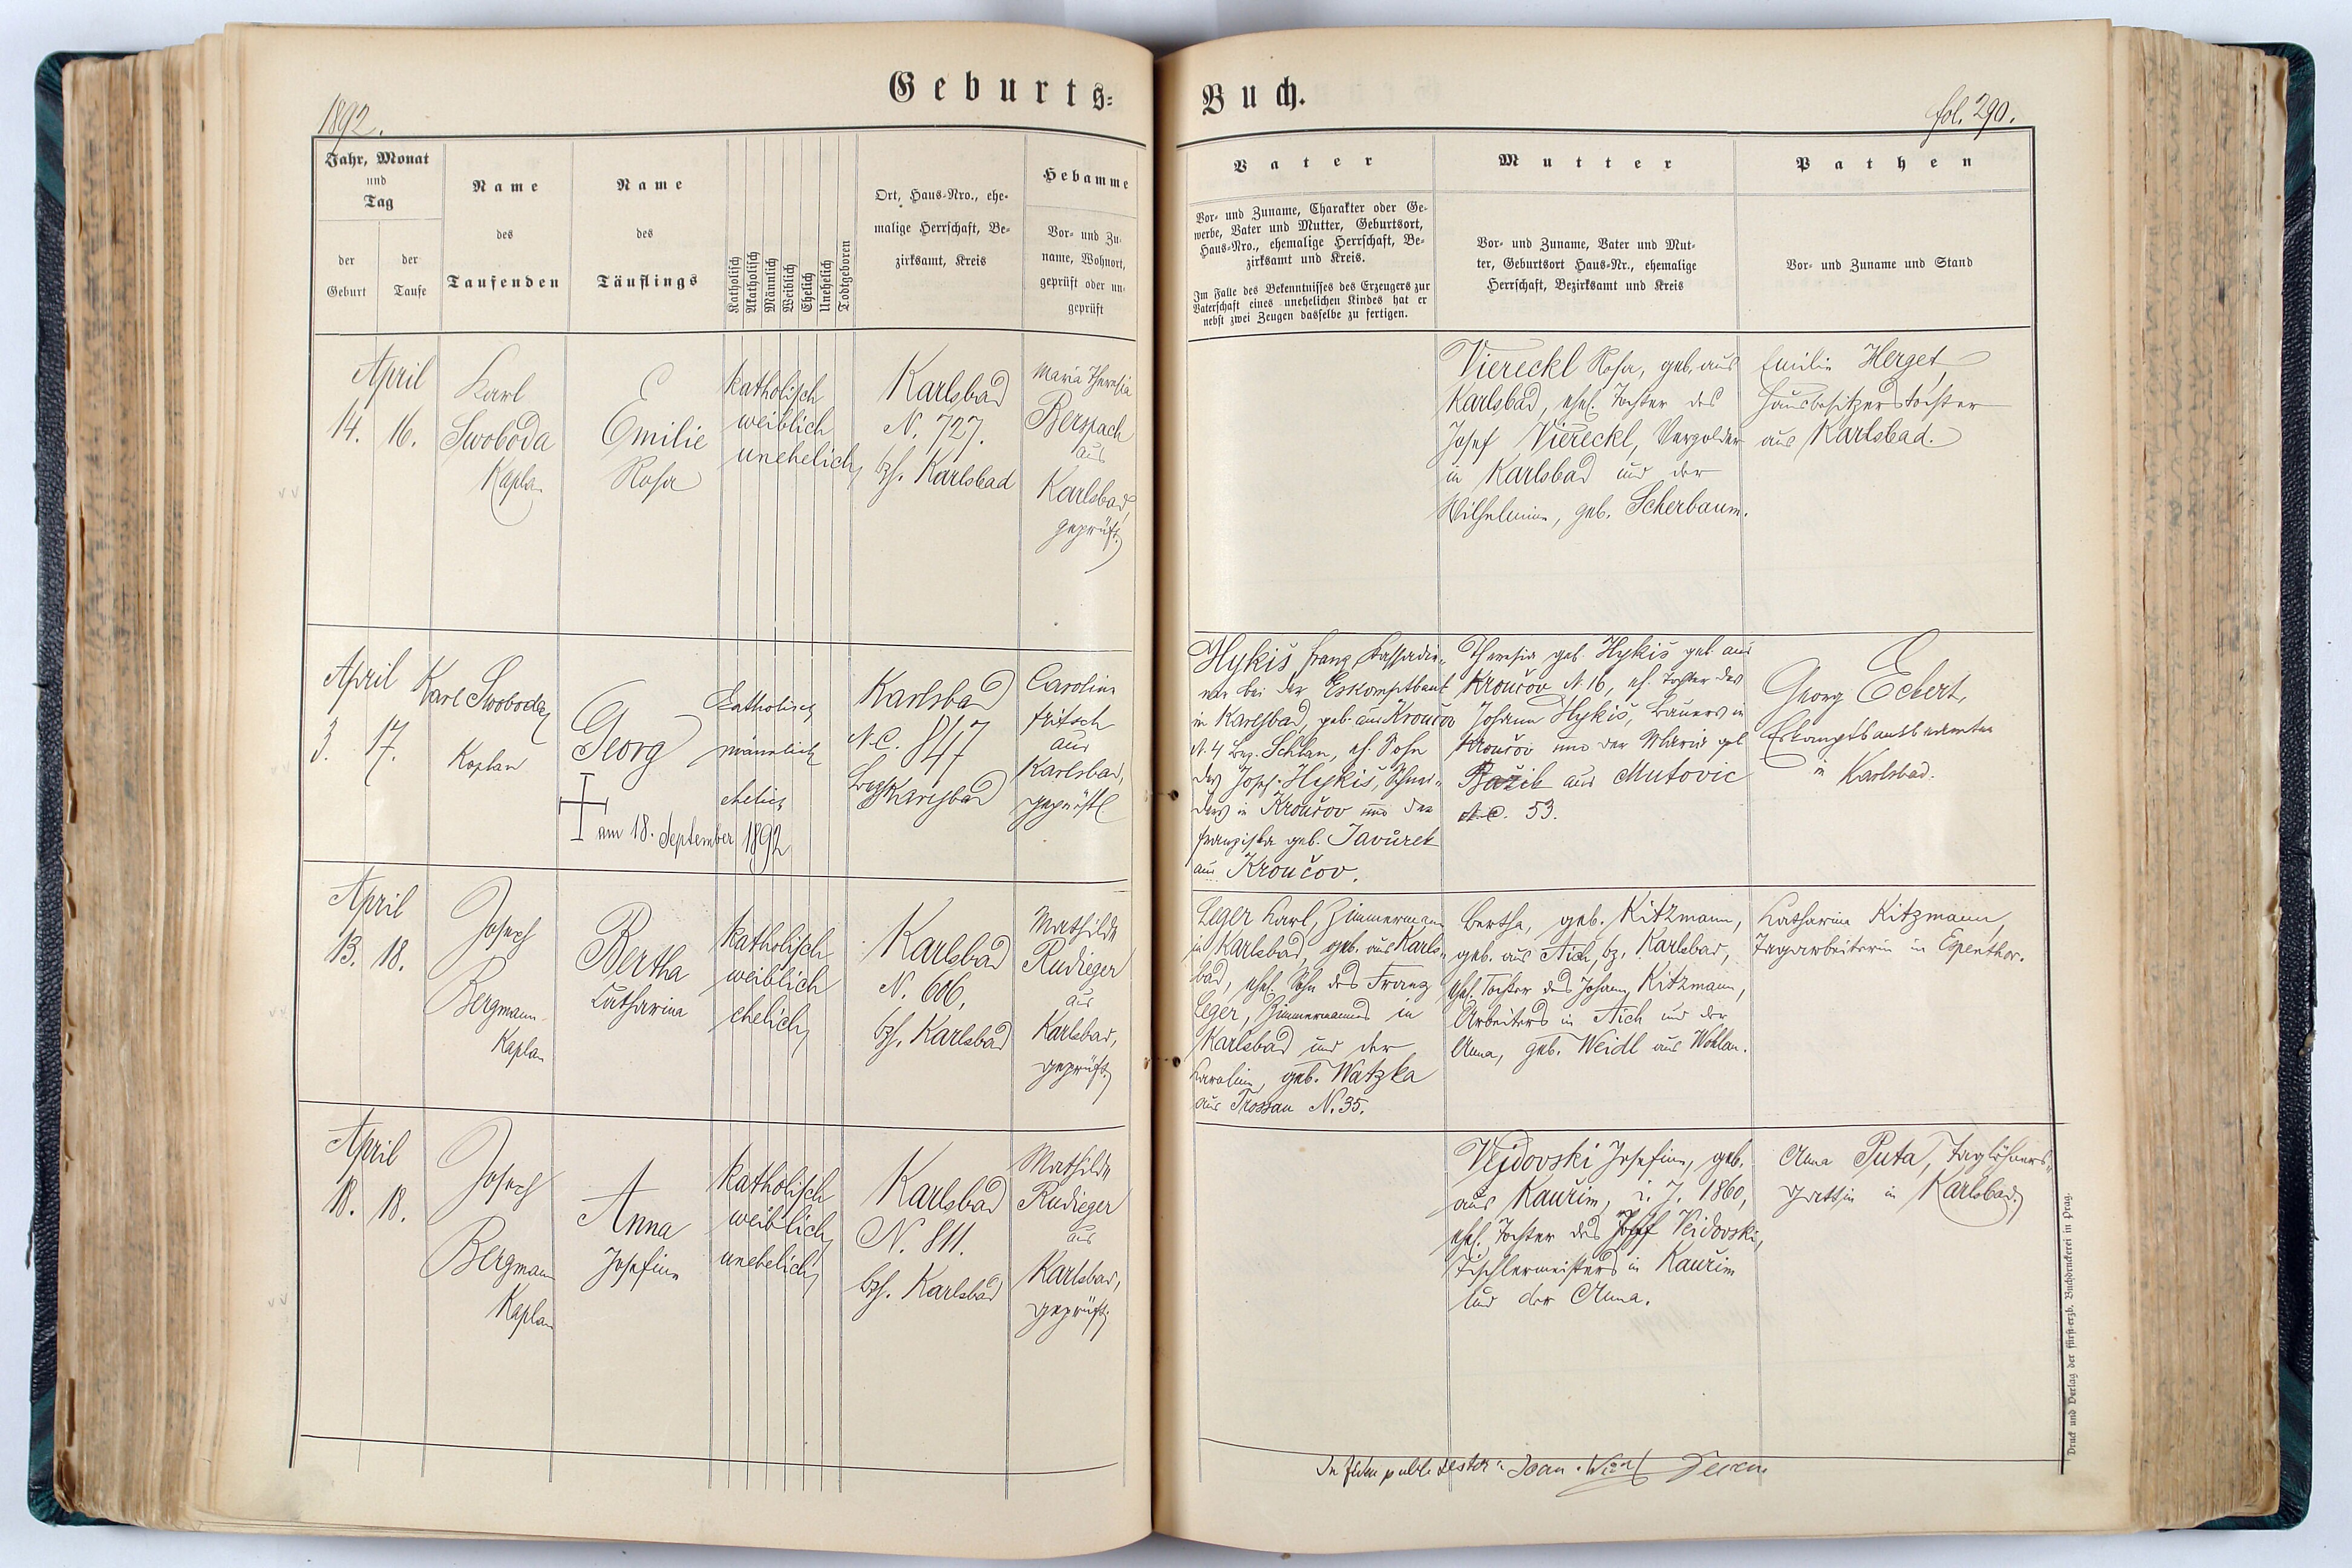 1892.
Geburts-
Buch.
fol. 290.
Jahr, Monat
und
Tag
der
Geburt
der
Taufe
Name
des
Taufenden
Name
des
Täuflings
Katholisch
Akatholisch
Männlich
Weiblich
Ehelich
Unehelich
Todtgeboren
Ort, Haus-Nro., ehe-
malige Herrschaft, Be-
zirksamt, Kreis
Hebamme
Vor- und Zu-
name, Wohnort,
geprüft oder un-
geprüft
Vater
Vor- und Zuname, Charakter oder Ge-
werbe, Vater und Mutter, Geburtsort,
Haus-Nro., ehemalige Herrschaft, Be-
zirksamt und Kreis.
Im Falle des Bekenntnisses des Erzeugers zur
Vaterschaft eines unehelichen Kindes hat er
nebst zwei Zeugen dasselbe zu fertigen.
Mutter
Vor- und Zuname, Vater und Mut-
ter, Geburtsort Haus-Nr., ehemalige
Herrschaft, Bezirksamt und Kreis
Pathen
Vor- und Zuname und Stand
April
14. 16.
Karl
Swoboda
Kaplan
Emilie
Rosa
katholisch
weiblich
unehelich
Karlsbad
N. 727.
bzh. Karlsbad
Maria Theresia
Berspach
aus
Karlsbad,
geprüft.
Viereckl Rosa, geb. aus
Karlsbad, ehel. Tochter des
Josef Viereckl, Vergolder
in Karlsbad und der
Wilhelmine, geb. Scherbaum.
Emilie Herget,
Hausbesitzerstochter
aus Karlsbad.
April
3. 17.
Karl Swoboda
Kaplan
Georg
am 18. September 1892
katholisch
männlich
ehelich
Karlsbad
N.C. 847
Bez. Karlsbad
Carolina
Fritsch
aus
Karlsbad,
geprüft
Hykiš Franz Kassadie-
ner bei der Eskomptbank
in Karlsbad, geb. aus Kroučov
N. 4 Bez. Schlan, eh. Sohn
des Josef Hykiš, Schnei-
ders in Kroučov und der
Franziska geb. Javůrek
aus Kroučov.
Theresia geb. Hykiš geb. aus
Kroučov N. 16, eh. Tochter des
Johann Hykiš, Bauers in
Kroučov und der Maria geb.
Bažik aus Mutovic
N.C. 53.
Georg Eckert,
Eskomptbankbeamter
in Karlsbad.
April
13. 18.
Josef
Bergmann
Kaplan
Bertha
Katharina
katholisch
weiblich
ehelich
Karlsbad
N. 606,
bzh. Karlsbad
Mathilde
Rudieger
aus
Karlsbad,
geprüft.
Leger Karl, Zimmermann
in Karlsbad, geb. aus Karls-
bad, ehel. Sohn des Franz
Leger, Zimmermanns in
Karlsbad und der
Karoline, geb. Watzka
aus Trossau N. 35.
Bertha, geb. Kitzmann,
geb. aus Aich, bz. Karlsbad,
ehel. Tochter des Johann Kitzmann,
Arbeiters in Aich und der
Anna, geb. Weidl aus Wohlau.
Katharina Kitzmann,
Tagarbeiterin in Espenthor.
April
18. 18.
Josef
Bergmann
Kaplan
Anna
Josefine
katholisch
weiblich
unehelich
Karlsbad
N. 811.
bzh. Karlsbad
Mathilde
Rudieger
aus
Karlsbad,
geprüft.
Vejdovski Josefine, geb.
aus Kauřim, i. J. 1860,
ehel. Tochter des Josef Veidovski,
Tischlermeisters in Kauřim
und der Anna.
Anna Puta, Taglöhners-
gattin in Karlsbad
In fidem publ
Druck und Verlag der fürst-erzb. Buchdruckerei in Prag.